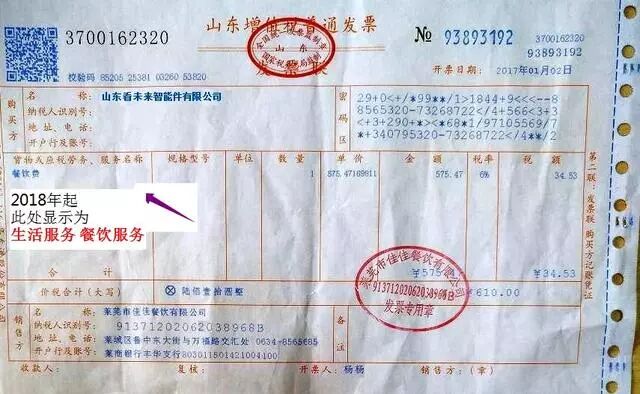 3700162320
山东增值税普通发票
№ 93893192
93893192
校验码 85205 25381 03260 53820
开票日期: 2017年01月02日
购买方
名称: 山东看未来智能件有限公司
纳税人识别号:
地址、电话:
开户行及账号:
密码区
29+0<+/*99**/1>1844+9<<--8
8565320-73268722/+566<3+3
<3+290+><*68*1/97105569/7
*+340795320-73268722/<**/2
货物或应税劳务、服务名称 规格型号 单位 数量 单价 金额 税率 税额
餐饮费 1 575.47169811 575.47 6% 34.53
2018年起
此处显示为
生活服务 餐饮服务
合计 ¥575.47 ¥34.53
价税合计(大写) ⊗ 陆佰壹拾圆整 ¥610.00
莱芜市佳佳餐饮有限公司
91371202062038968B
发票专用章
销售方
名称: 莱芜市佳佳餐饮有限公司
纳税人识别号: 91371202062038968B
地址、电话: 莱城区鲁中东大街与万福路交汇处 0634-8565685
开户行及账号: 莱商银行丰华支行803011501421004100
备注
收款人: 复核: 开票人: 杨杨 销售方:(章)
第二联:发票联 购买方记账凭证